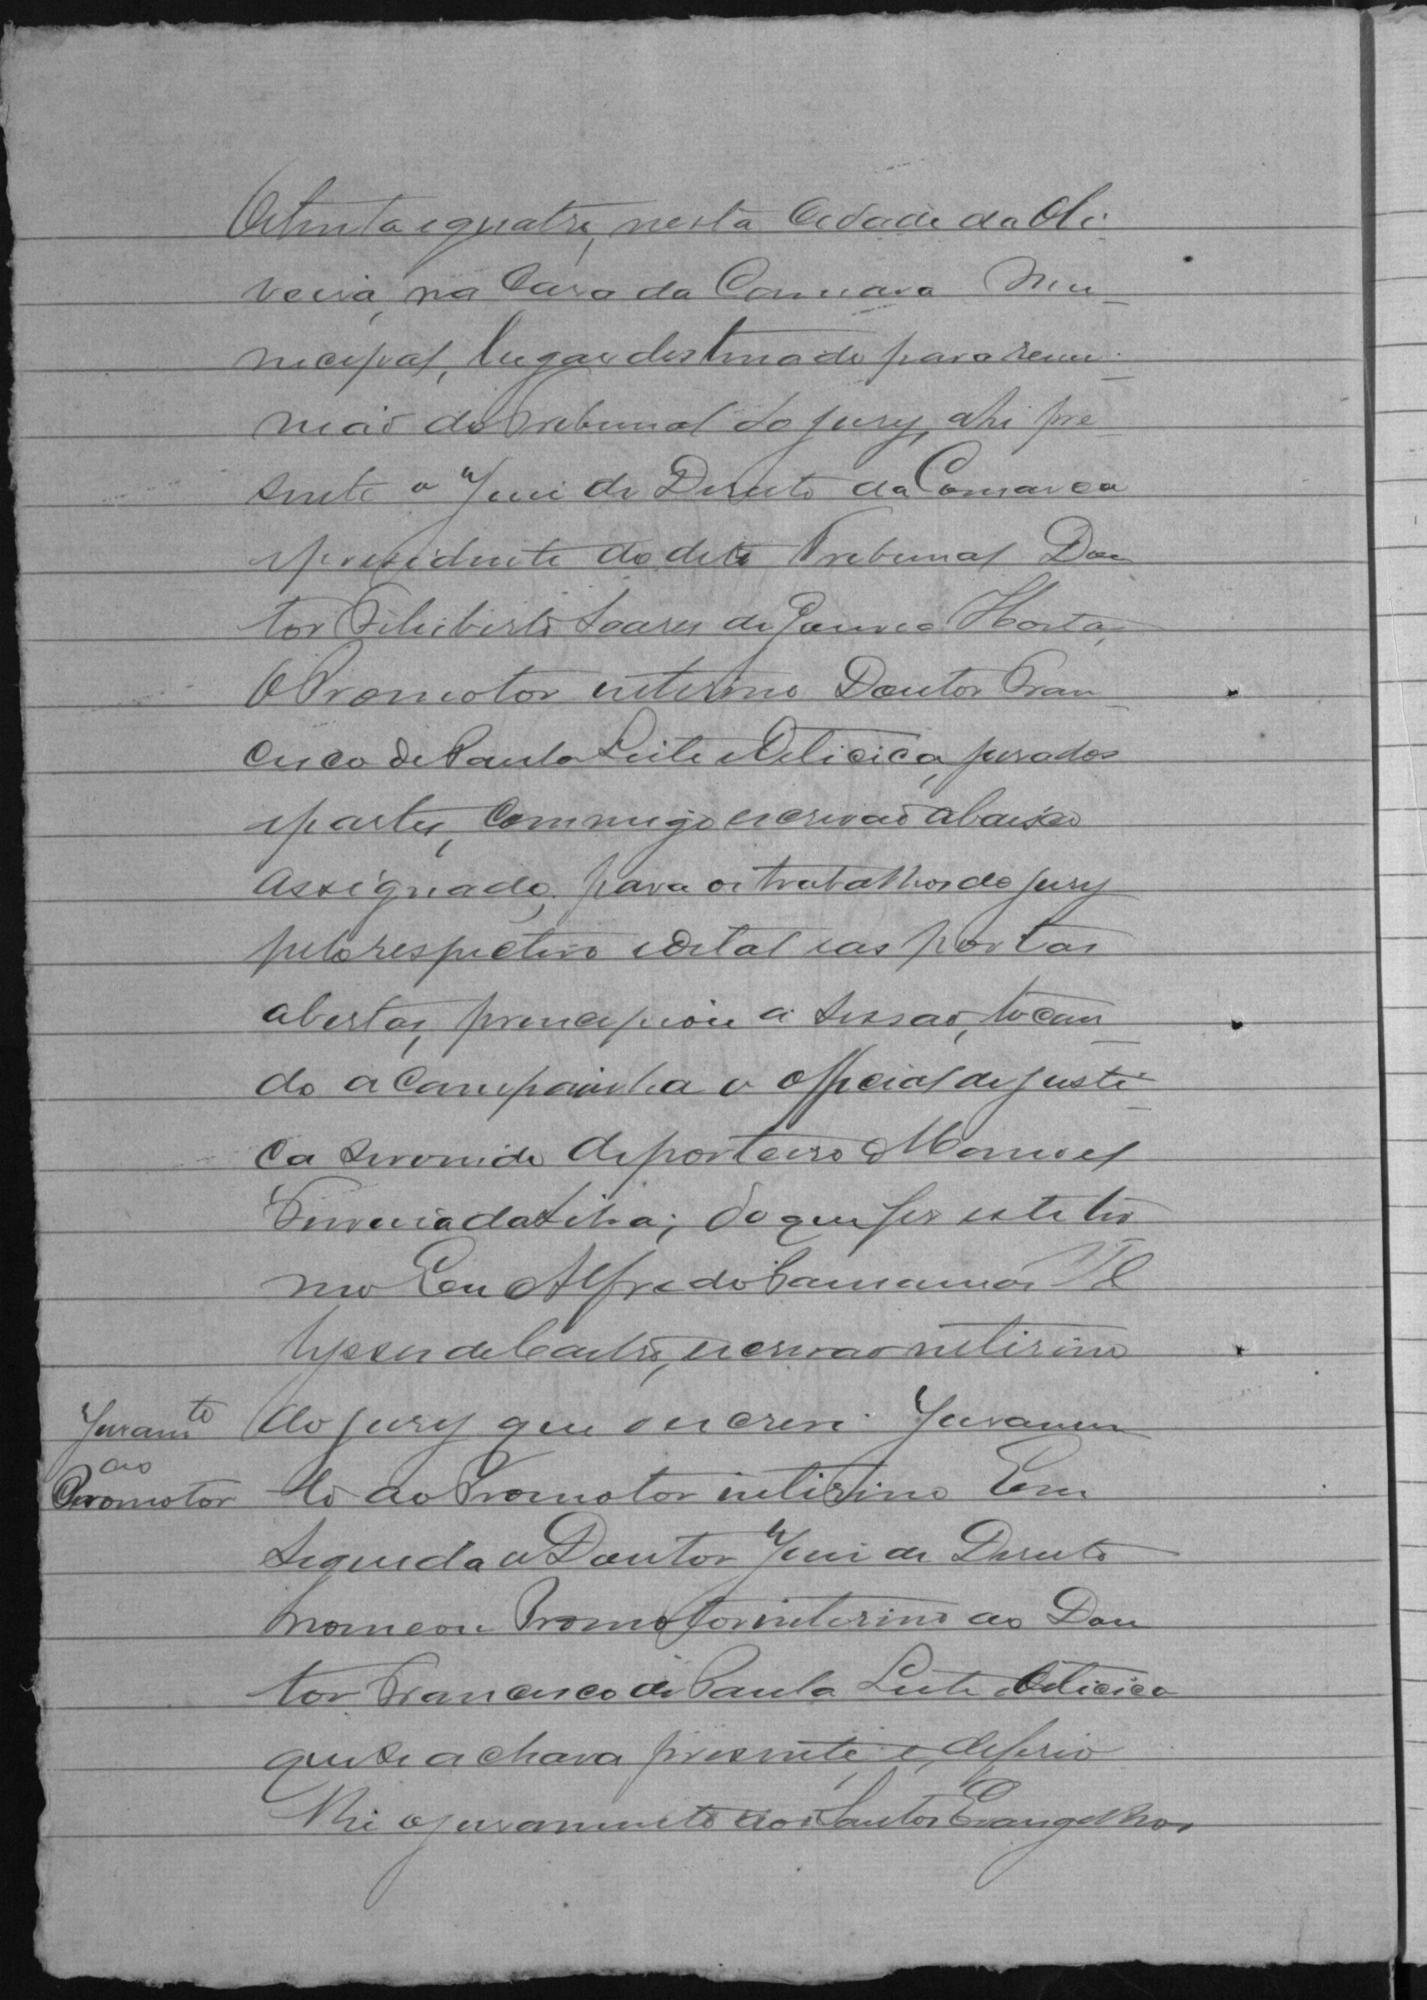 Oitenta e quatro, nesta Cidade da Oli-
veira, na Casa da Camara Mu-
nicipal, lugar destinado para reu-
nião do Tribunal do jury, ahi pre-
sente o Juiz de Direito da Comarca
e presidente do dito Tribunal Dou
tor Feliberto Soares de Gouvea Horta,
O Promotor interino Doutor Fran
cisco de Paula Leite e Oiticica, jurados
e partes, commigo escrivão abaixo
assignado, para os trabalhos do jury
pelo respectivo edital e as portas
abertas, principiou a sessão, tocan
do a campainha o official de justi-
ça servindo de porteiro Manoel
Ferreira da Silva; do que fiz este ter
mo Eu Alfredo
de Castro, escrivão interino
do jury que o escrevi. Juramen
Juram.to
ao
Promotor
to ao Promotor interino Em
seguida o Doutor Juiz de Direito
nomeou Promotor interino ao Dou
tor Francisco de Paula Leite e Oiticica
que se achava presente, e, deferio
lhe o juramento aos Santos Evangelhos